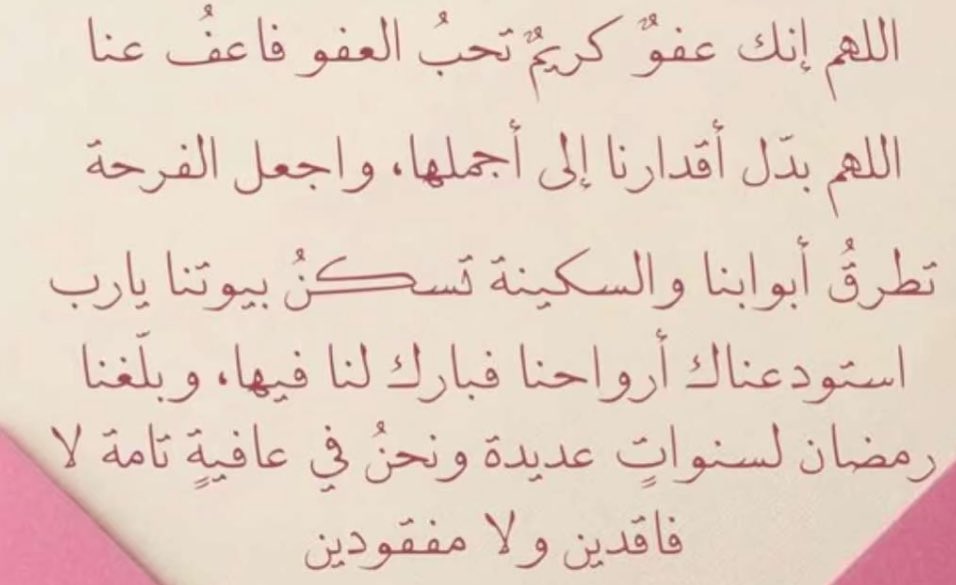 اللهم إنك عفوٌ كريمٌ تحبُ العفو فاعفُ عنا
اللهم بدّل أقدارنا إلى أجملها، واجعل الفرحة
تطرقُ أبوابنا والسكينة تسكنُ بيوتنا يارب
استودعناك أرواحنا فبارك لنا فيها، وبلّغنا
رمضان لسنواتٍ عديدة ونحنُ في عافيةٍ تامة لا
فاقدين ولا مفقودين